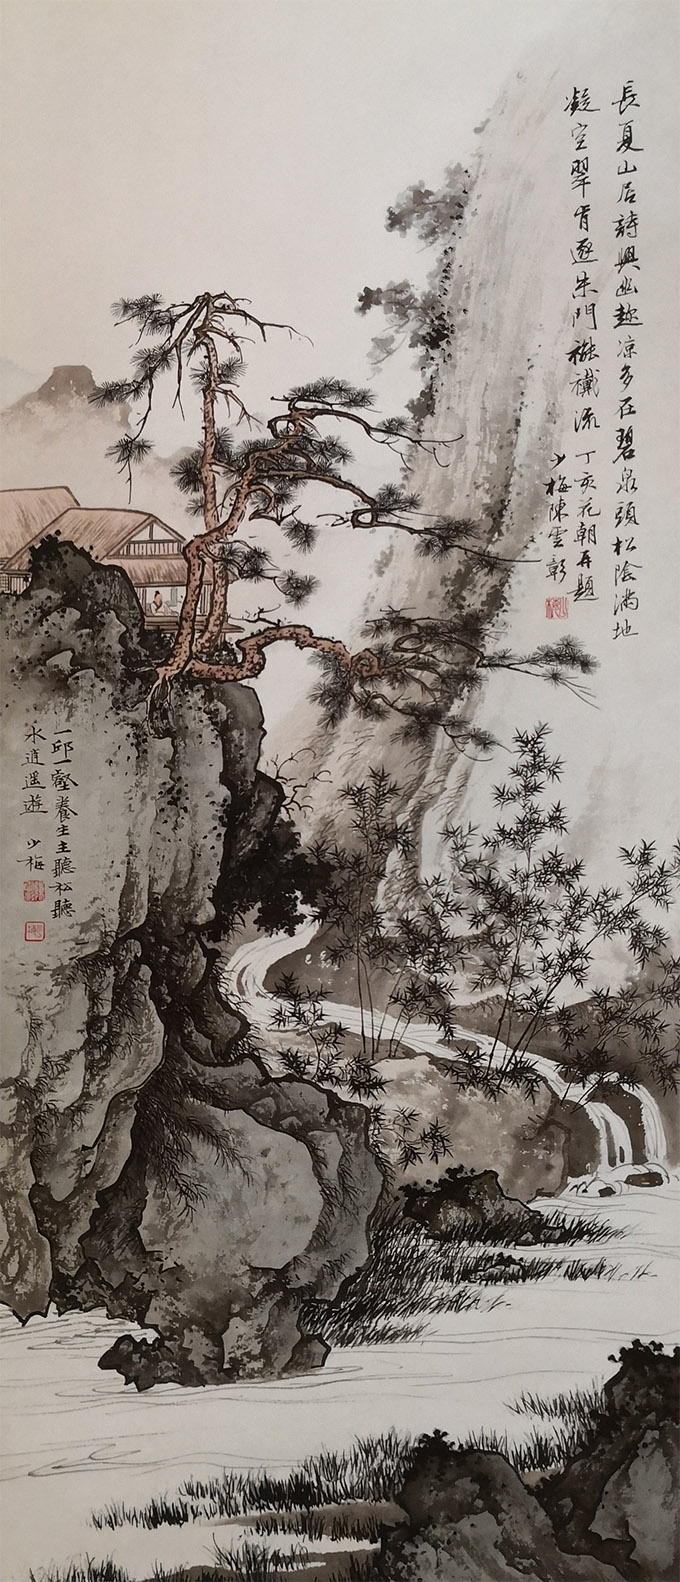 長夏山居詩興幽趁凉多在碧泉頭松陰滿地
凝空翠肯逐朱門襶襳流 丁亥花朝再題
少梅陳雲彰
一邱一壑養生主聽松聽
水逍遥遊 少梅